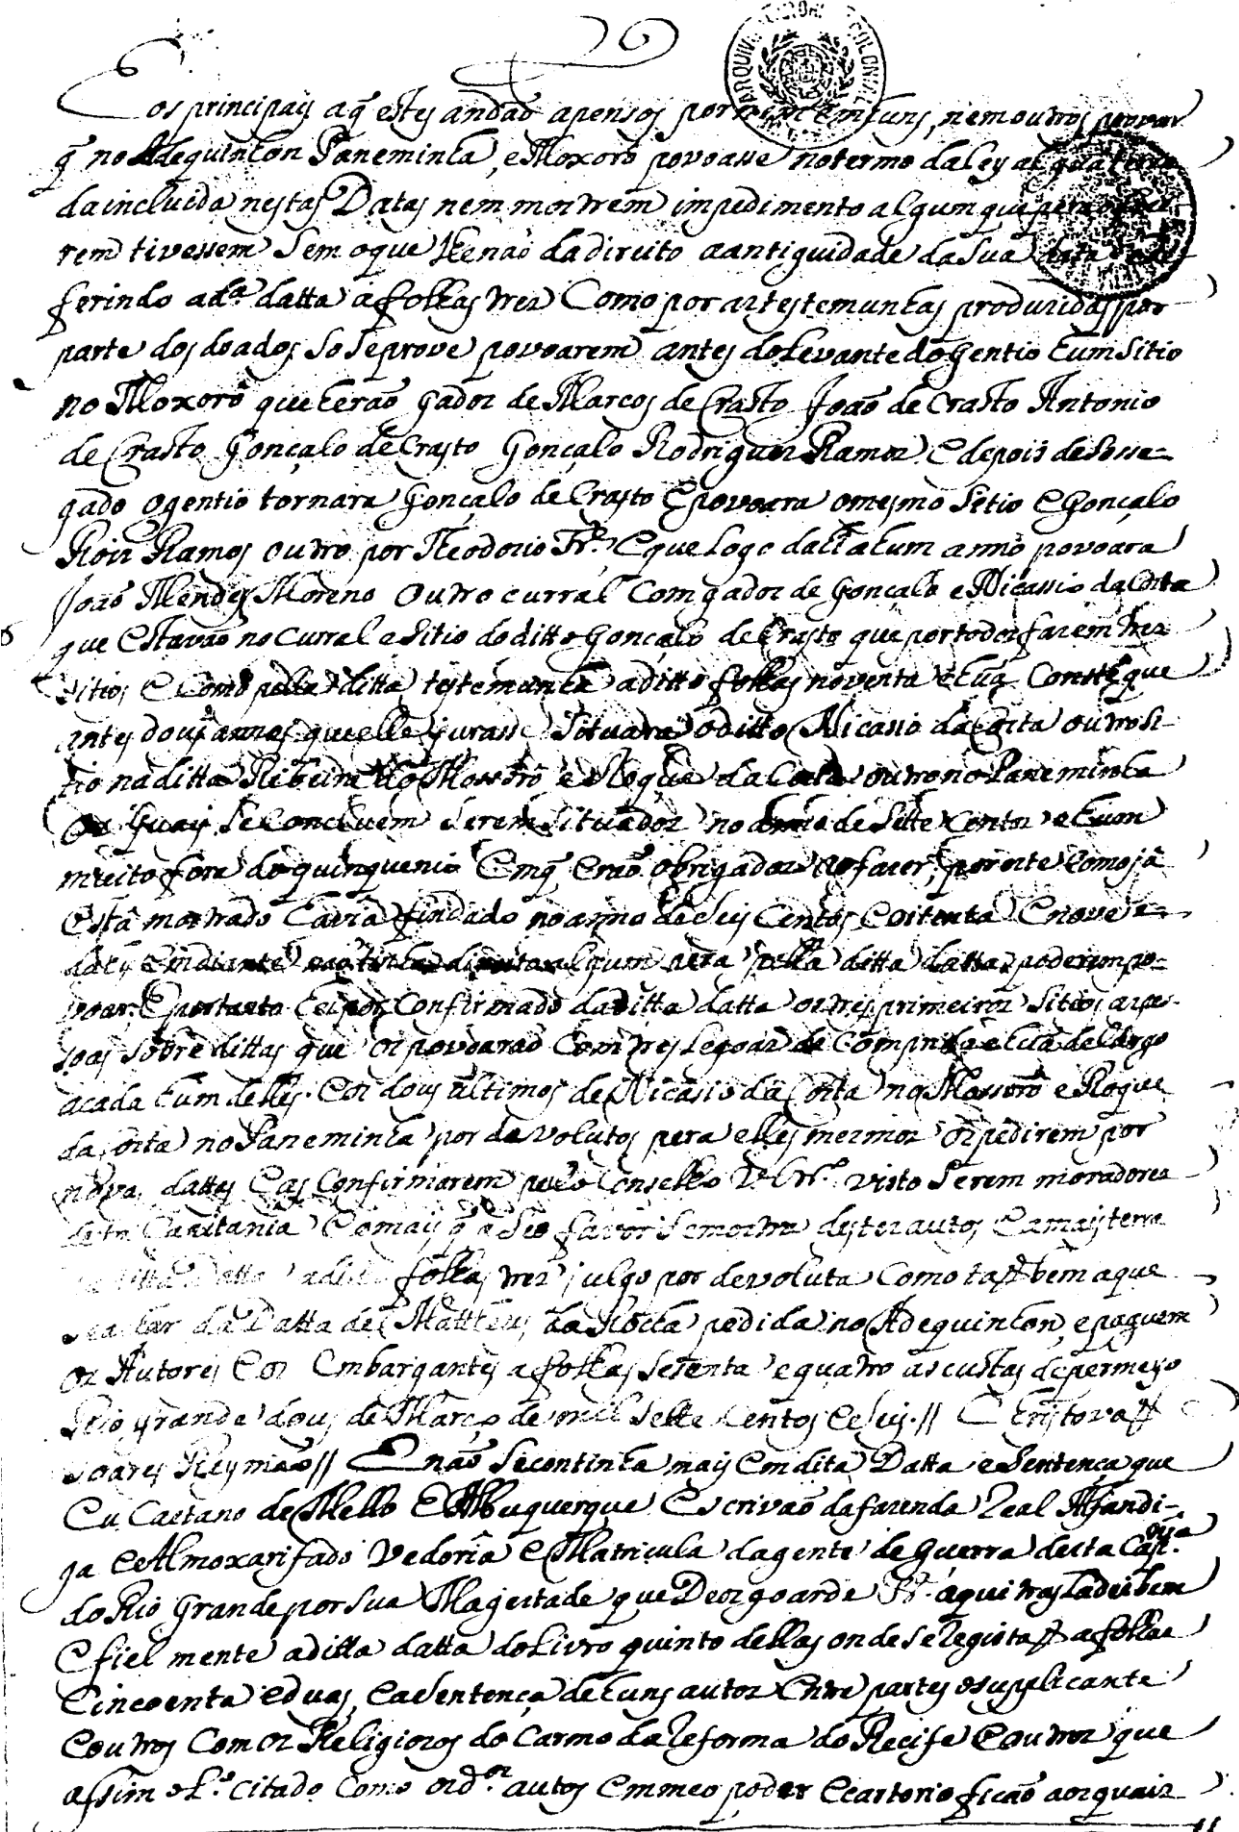 E os principais a q̃ estes andaõ apensos por nem huns, nem outros provar
q̃ no Adequinhon Paneminha, e Moxorò povoasse no termo da ley a
da incluida nestas Datas nem mostrem impedimento algum que pera o
rem tivessem sem o que lhe naõ da direito a antiguidade da sua data
ferindo a d.ª datta a folhas tres Como por as testemunhas produzidas por
parte dos doados so se prove povoarem antes do levante do gentio hum sitio
no Moxorò que heraõ gados de Marcos de Crasto Joaõ de Crasto Antonio
de Crasto Gonçalo de Crasto Gonçalo Rodrigues Ramos E depois de sosse-
gado o gentio tornara Gonçalo de Crasto E povoara o mesmo Sitio E Gonçalo
Roiz Ramos outro por Theodozio Fr.ª E que logo dalli a hum anno povoara
Joaõ Mendes Moreno outro curral Com gados de Gonçalo e Nicassio da Costa
que Estavaõ no Curral e sitio do ditto Gonçalo de Crasto que por todos fazem tres
sitios E Como pella ditta testemunha a ditto folhas noventa e hũa Conste que
antes dous annos que elle jurasse Situara o ditto Nicasio da Costa outro si-
tio na ditta Ribeira do Mossorò e Roque da Costa outro no Paneminha
Os quais se Concluem serem situados no anno de sette Centos e hum
muito fora do quinquenio Em q̃ Eraõ obrigados ao fazer, por este Como jà
Està mostrado havia findado no anno de seis Centos E oitenta E nove e
dahy Em diante naõ tinhaõ direito algum pera pella ditta datta poderem po-
voar. E portanto hei por Confirmado da ditta datta os tres primeiros Sitios as pes-
soas sobre dittas que os povoaraõ Com tres legoas de Comprido e hũa de largo
a cada hum delles. E os dous ultimos de Nicasio da Costa no Mossorò e Roque
da Costa no Paneminha por devolutos pera elles mesmos os pedirem por
nova dattas E as Confirmarem pelo Conselho Vltr.º visto serem moradores
desta Capitania E o mais q̃ a seo favor se mostra destes autos E a mais terra
da ditta Datta a ditto folhas tres julgo por devoluta Como taõbem a que
se achar da Datta de Mattheus da Rocha pedida no Adequinhon, e paguem
os Autores E os Embargantes a folhas setenta e quatro as custas de permeyo
Rio grande dous de Março de mil sette Centos E seis. // Christovaõ
Soares Reymaõ // E naõ se continha mais Em dita Datta e Sentença que
Eu Caetano de Mello E Albuquerque Escrivaõ da fazenda Real Alfandi-
ga E Almoxarifado Vedoria E Matricula da gente de guerra desta Capt.nia
do Rio grande por sua Magestade que Deos goarde V.ª aqui trasladei bem
E fiel mente a ditta datta do Livro quinto dellas onde se registaõ a folhas
Cincoenta e duas E a sentença de huns autos Entre partes o supplicante
E outros Com os Religiozos do Carmo da Reforma do Recife E outros que
assim o L.º citado Como os d.os autos Em meo poder E cartorio ficaõ aos quais